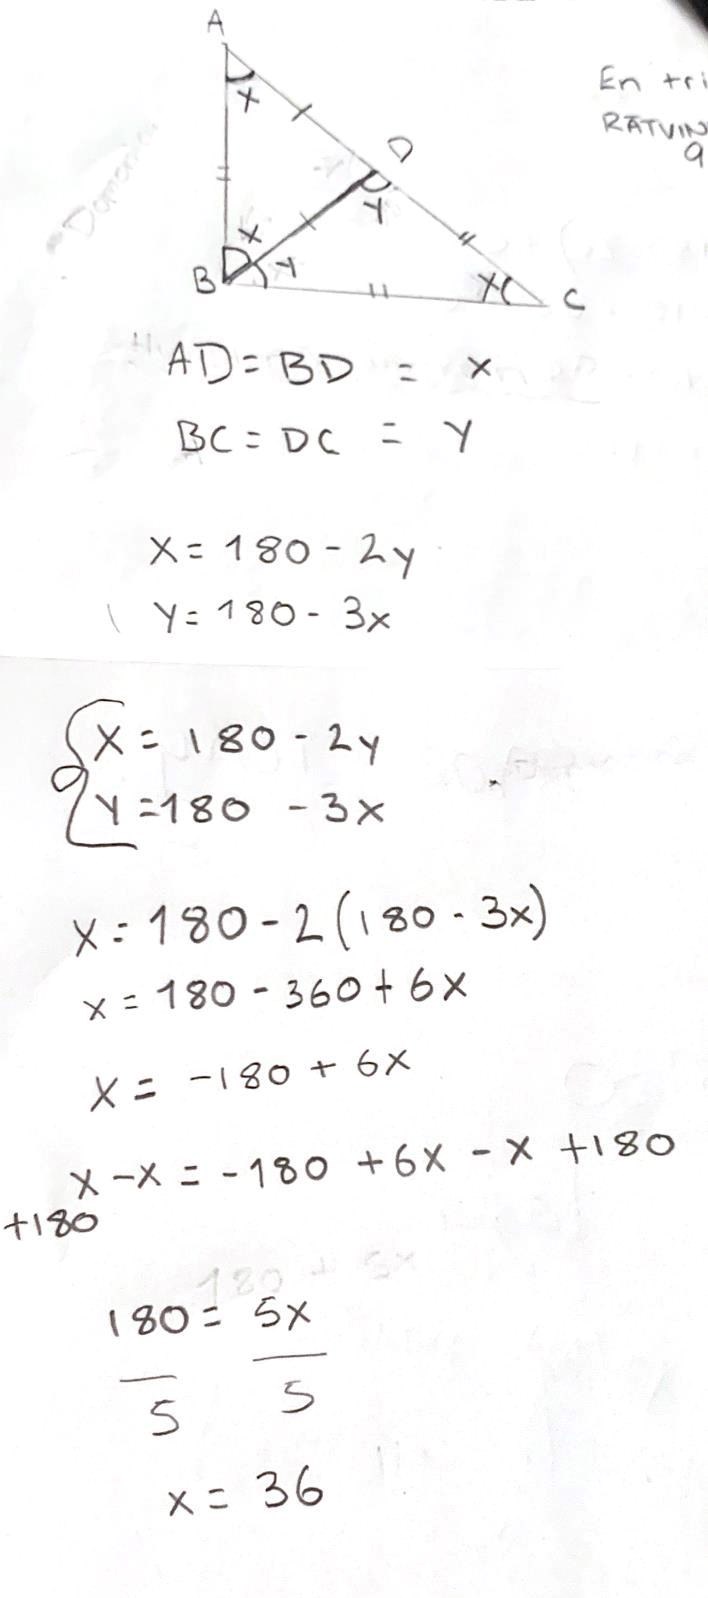 A
En tri
RÄTVIN
9
X
D
Y
X
B
Y
X
C
AD = BD = X
BC = DC = Y
X = 180 - 2y
Y = 180 - 3x
X = 180 - 2y
Y = 180 - 3x
X = 180 - 2(180 - 3x)
x = 180 - 360 + 6x
X = -180 + 6x
x - x = -180 + 6x - x + 180
+180
180 = 5x
5 5
x = 36